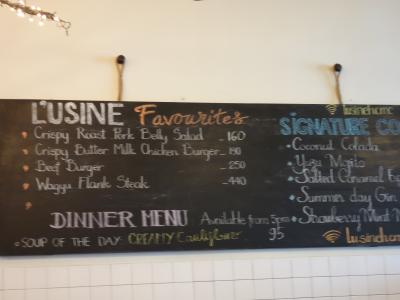 L'USINE Favourites
Crispy Roast Pork Belly Salad - 160
Crispy Butter Milk Chicken Burger - 190
Beef Burger - 250
Wagyu Flank Steak - 440
DINNER MENU Available from 5pm
SOUP OF THE DAY: CREAMY Cauliflower 95
lusinehcmc
SIGNATURE CO
Coconut Colada
Yuzu Mojito
Salted Caramel
Summer day Gin
Strawberry Mint
lusinehcm